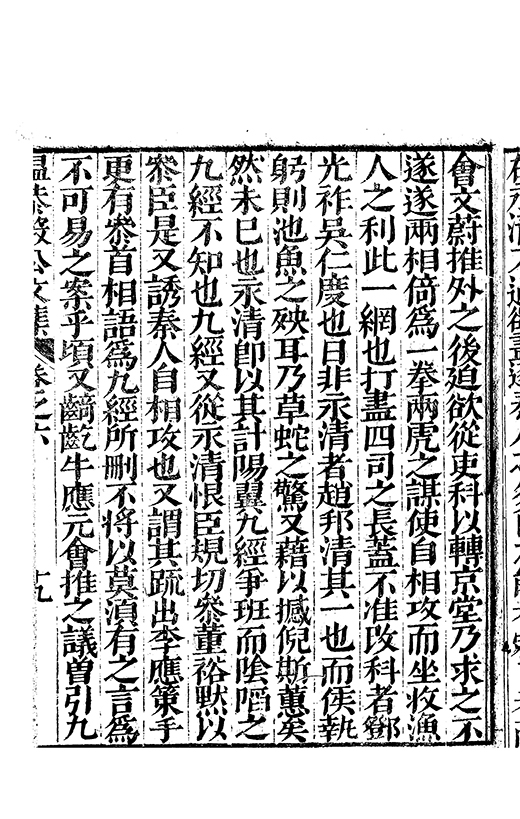 會文蔚推外之後迫欲從吏科以轉京堂乃求之不
遂遂兩相倚爲一拳兩虎之謀使自相攻而坐收漁
人之利此一網也打盡四司之長蓋不准改科者鄧
光祚吳仁慶也日非示清者趙邦清其一也而侯執
躬則池魚之殃耳乃草蛇之驚又藉以撼倪斯蕙矣
然未已也示清卽以其計陽翼九經爭班而陰㗖之
九經不知也九經又從示清恨臣規切叅董裕默以
叅臣是又誘秦人自相攻也又謂其䟽出李應策手
更有叅首相語爲九經所刪不將以莫湏有之言爲
不可易之案乎頃又齮齕牛應元會推之議曽引九
溫恭毅公文集
卷之六
十九